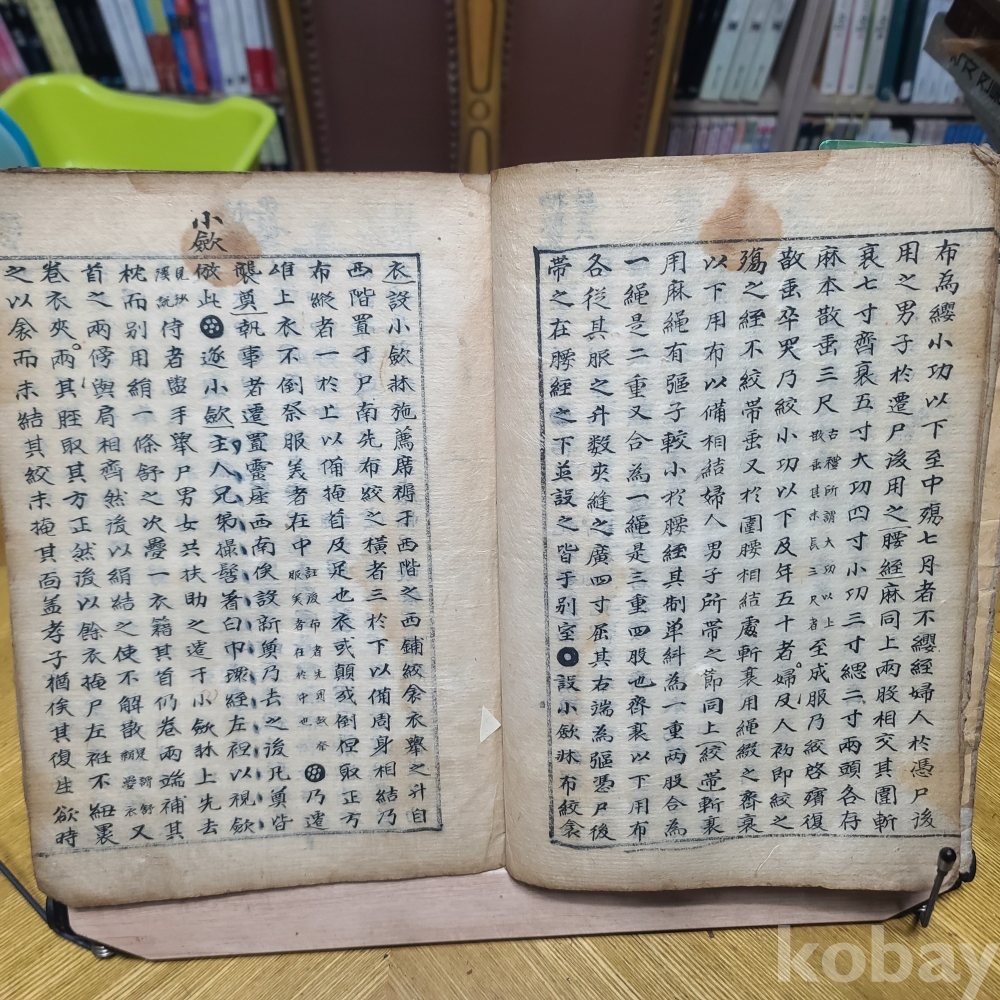 布為纓小功以下至中殤七月者不纓絰婦人於憑尸後
用之男子於遷尸後用之腰絰麻同上兩股相交其圍斬
衰七寸齊衰五寸大功四寸小功三寸緦二寸兩頭各存
麻本散垂三尺古禮所謂大功以上散垂其末長三尺者至成服乃絞啓殯復
散垂卒哭乃絞小功以下及年五十者婦及人初即絞之
殤之絰不絞帶垂又於圍腰相結處斬衰用繩綴之齊衰
以下用布以備相結婦人男子所帶之節同上絞帶斬衰
用麻繩有彄子較小於腰絰其制單糾為一重兩股合為
一繩是二重又合為一繩是三重四股也齊衰以下用布
各從其服之升數夾縫之廣四寸屈其右端為彄憑尸後
帶之在腰絰之下並設之皆于別室設小斂牀布絞衾
衣設小斂牀施薦席褥于西階之西鋪絞衾衣舉之升自
西階置于尸南先布絞之橫者三於下以備周身相結乃
布縱者一於上以備掩首及足也衣或顛或倒但取正方
唯上衣不倒祭服美者在中乃遷
襲奠執事者遷置靈座西南俟設新奠乃去之後凡奠皆
小斂
倣此遂小斂主人兄弟撮髻著白巾環絰左袒以視斂
侍者盥手舉尸男女共扶助之遷于小斂牀上先去
枕而別用絹一條舒之次疊一衣籍其首仍卷兩端補其
首之兩傍與肩相齊然後以絹結之使不解散又
卷衣夾兩其脛取其方正然後以餘衣掩尸左衽不紐裹
之以衾而未結其絞未掩其面盖孝子猶俟其復生欲時